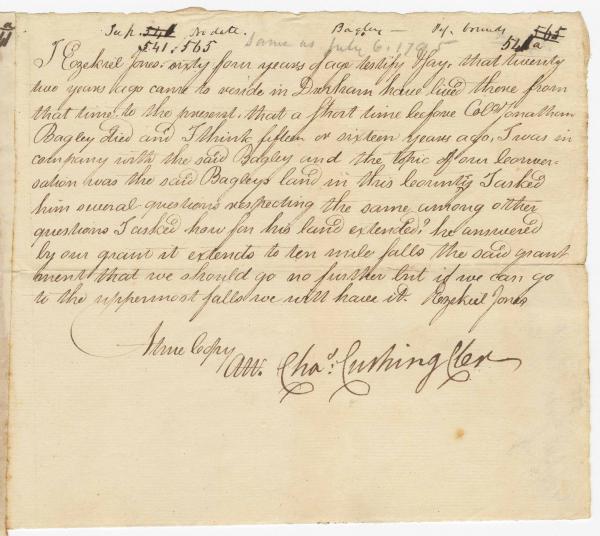 Sup. 541 No date. Bagley — Pej. bounds 565
541:565 Same as July 6. 1795 541a
I Ezekiel Jones sixty four years of age testify & say, that twenty
two years ago came to reside in Durham have lived there from
that time to the present, that a short time before Col Jonathan
Bagley died and I think fifteen or sixteen years ago, I was in
company with the said Bagley and the topic of our conver-
sation was the said Bagleys land in this County I asked
him several questions respecting the same among other
questions I asked how far his land extended? he answered
by our grant it extends to ten mile falls the said grant
ment that we should go no further but if we can go
to the uppermost falls we will have it. Ezekiel Jones
A true Copy
Att. Chas: Cushing Cler